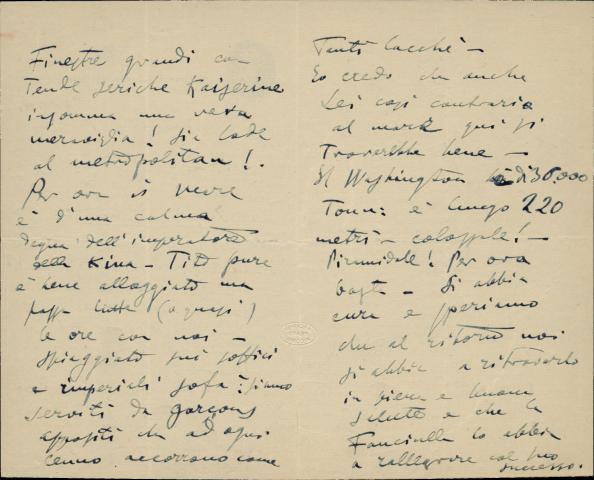 Finestre grandi con
Tende seriche Kaiserine
insomma una vera
meraviglia! Sia lode
al metropolitan!.
Per ora il mare
è d'una calma
degna dell'imperatore
della Kina - Tito pure
è bene alloggiato ma
passa tutte (o quasi)
le ore con noi -
spiaggiato sui soffici
e imperiali sofà: siamo
serviti da garçons
appositi che ad ogni
cenno accorrono come
Tanti lacchè -
Io credo che anche
Lei così contraria
al mare qui si
Troverebbe bene -
Il Washington di 36.000
Tonn: è lungo 220
metri - colossale! -
Piramidale! Per ora
basta - Si abbia
cura e speriamo
che al ritorno noi
si abbia a ritrovarlo
in piena e buona
salute e che la
Fanciulla lo abbia
a rallegrare col suo
successo.